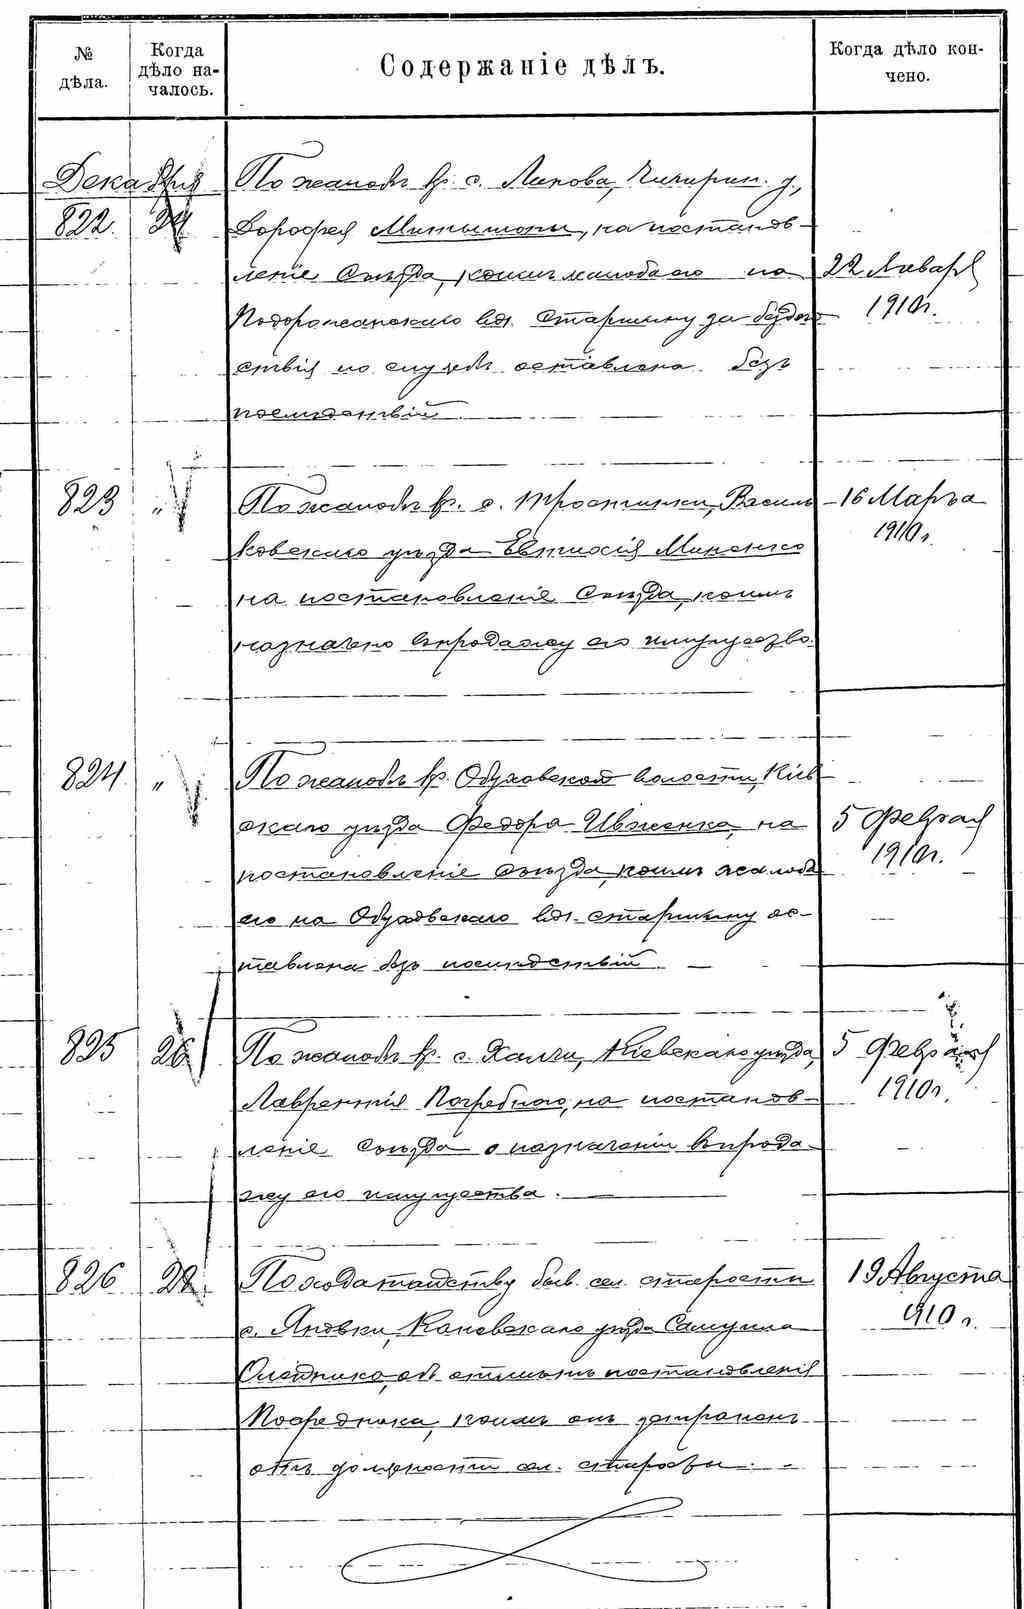 № дѣла.
Когда дѣло на-
чалось.
Содержаніе дѣлъ.
Когда дѣло кон-
чено.
Декабря
822. 24
По жалобѣ кр. с. Липова, Чигирин. у.,
Дорофея на постанов-
леніе Съѣзда, коимъ жалоба его на
22 Января
Подорожанскаго вол. старшину за бездѣй-
1910 г.
ствія по службѣ оставлена безъ
послѣдствій.
823 "
По жалобѣ кр. с. Тростинки, Василь-
16 Марта
ковскаго уѣзда Евтихія
1910 г.
на постановленіе Съѣзда, коимъ
назначено въ продажу его имущество.
824 "
По жалобѣ кр. Обуховской волости, Кіев-
скаго уѣзда Федора Ивженка, на
5 Февраля
постановленіе Съѣзда, коимъ жалоба
1910 г.
его на Обуховскаго вол. старшину ос-
тавлена безъ послѣдствій.
825 26
По жалобѣ кр. с. Халчи, Кіевскаго уѣзда,
5 Февраля
Лаврентія Погребного, на постанов-
1910 г.
леніе Съѣзда о назначеніи въ прода-
жу его имущества.
826 28.
По ходатайству быв. сел. старосты
19 Августа
с. Яновки, Каневскаго уѣзда Самуила
1910 г.
Олейника, объ отмѣнѣ постановленія
Посредника, коимъ онъ устраненъ
отъ должности сел. старосты.